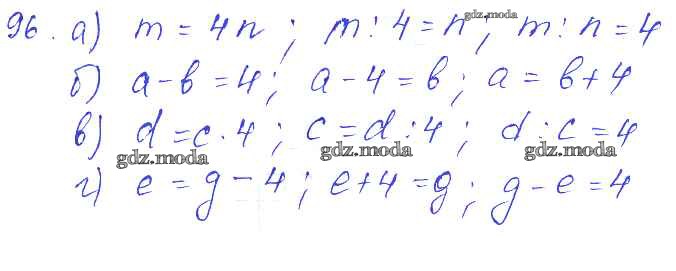 96. а) m = 4n; m : 4 = n; m : n = 4
gdz.moda
б) a - b = 4; a - 4 = b; a = b + 4
в) d = c · 4; c = d : 4; d : c = 4
gdz.moda gdz.moda gdz.moda
г) e = g - 4; e + 4 = g; g - e = 4